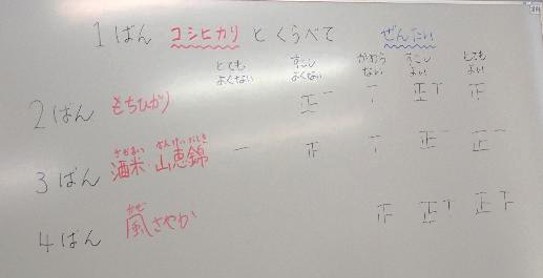 1ばん コシヒカリ とくらべて ぜんたい
とても よくない すこし よくない かわら ない すこし よい とても よい
2ばん もちひかり 正一 丅 正丅 正
さかまい さんけいにしき
3ばん 酒米・山恵錦 一 正 丅 正一 正一
かぜ
4ばん 風さやか 正 正丅 正丅